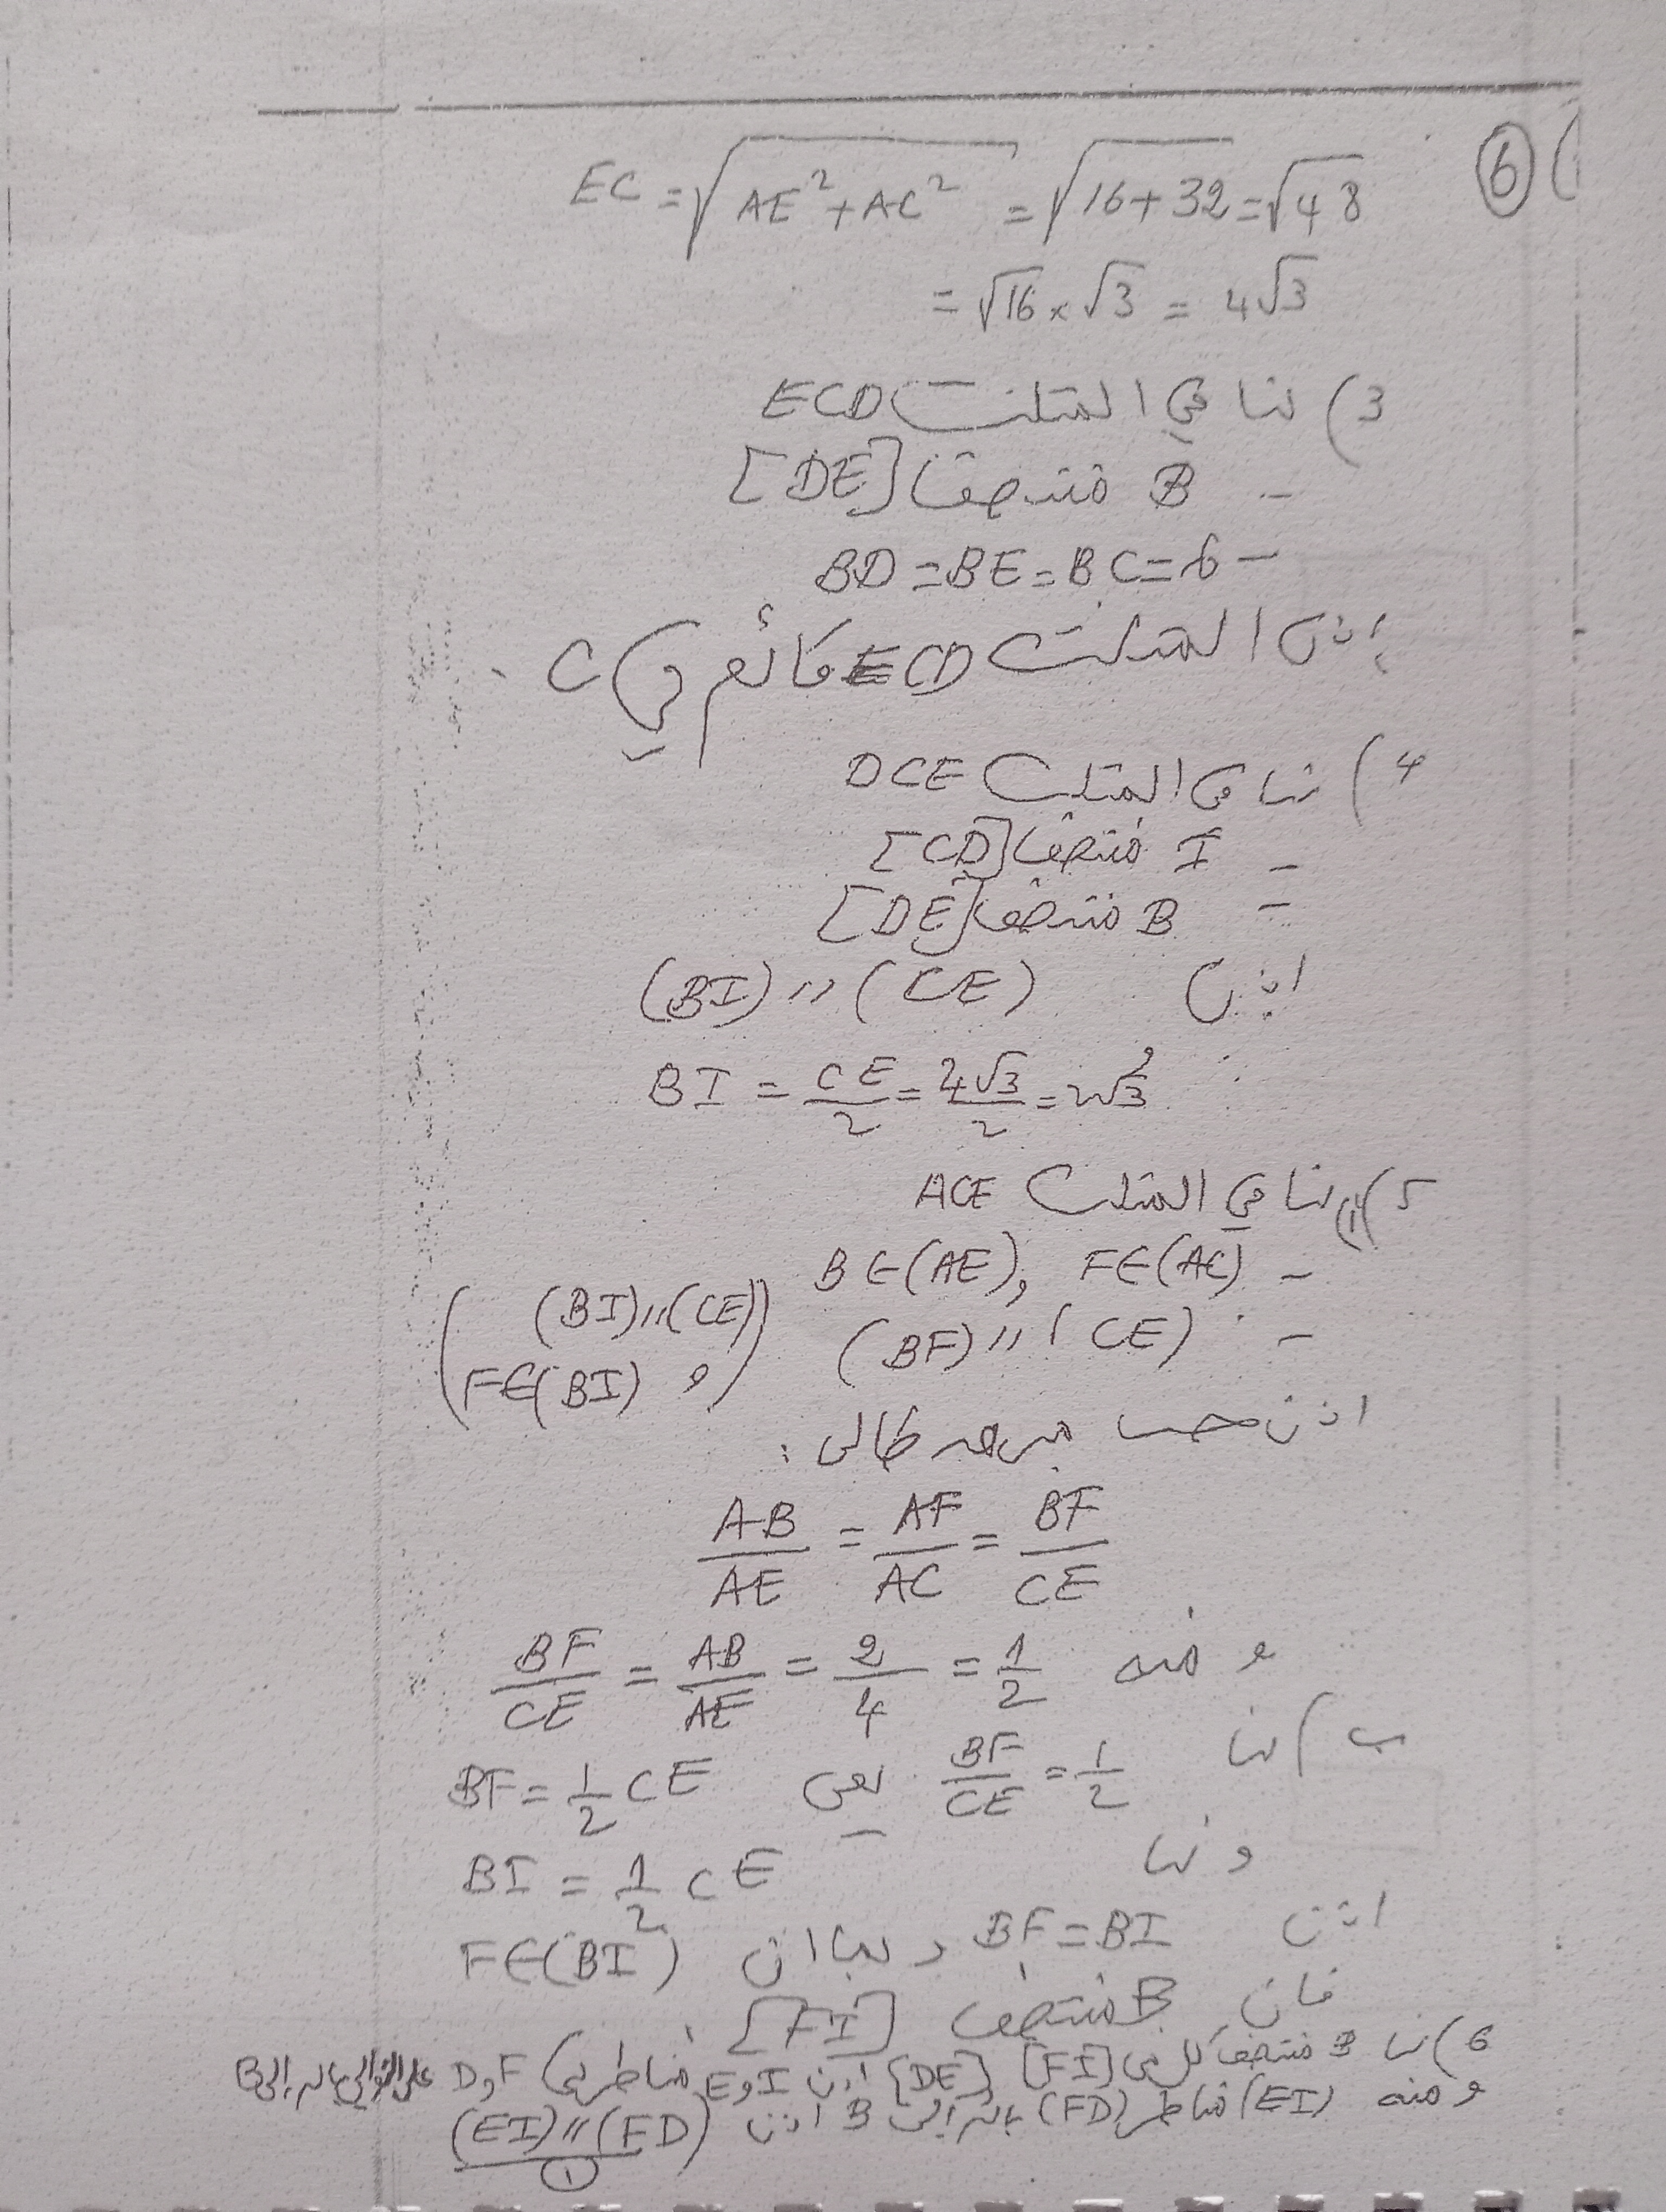 ⑥ (
EC = √AE²+AC² = √16+32 = √48
= √16 × √3 = 4√3
3) لنا في المثلث ECD
- B منتصف [DE]
- BD = BE = BC = 6
إذن المثلث ECD قائم في C.
4) لنا في المثلث DCE
- I منتصف [CD]
- B منتصف [DE]
اذن (BI) // (CE)
و BI = CE/2 = 4√3/2 = 2√3
5) ا) لنا في المثلث ACE
- B ∈ (AE), F ∈ (AC)
- (BF) // (CE) ((BI) // (CE) و F ∈ (BI))
اذن حسب مبرهنة طالس:
AB/AE = AF/AC = BF/CE
و منه BF/CE = AB/AE = 2/4 = 1/2
ب) لنا BF/CE = 1/2 يعني BF = 1/2 CE
و لنا BI = 1/2 CE
اذن BF = BI و بما ان F ∈ (BI)
فان B منتصف [FI]
6) لنا B منتصف كل من [FI] [DE] اذن I و E مناظرتي F و D على التوالي بالنسبة إلى B
و منه (EI) مناظر (FD) بالنسبة إلى B اذن (EI) // (FD)
①